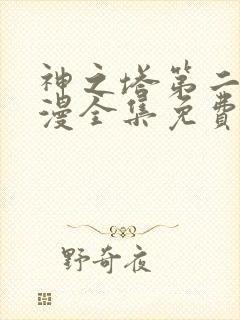 神之塔第二
漫全集免费
野奇夜